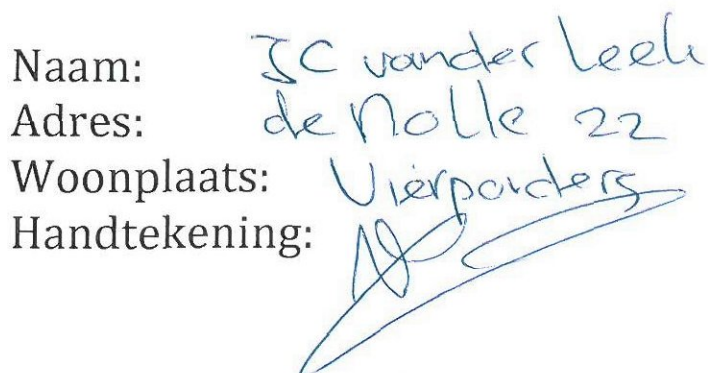 Naam: JC vander Leek
Adres: de Nolle 22
Woonplaats: Vierpolders
Handtekening: